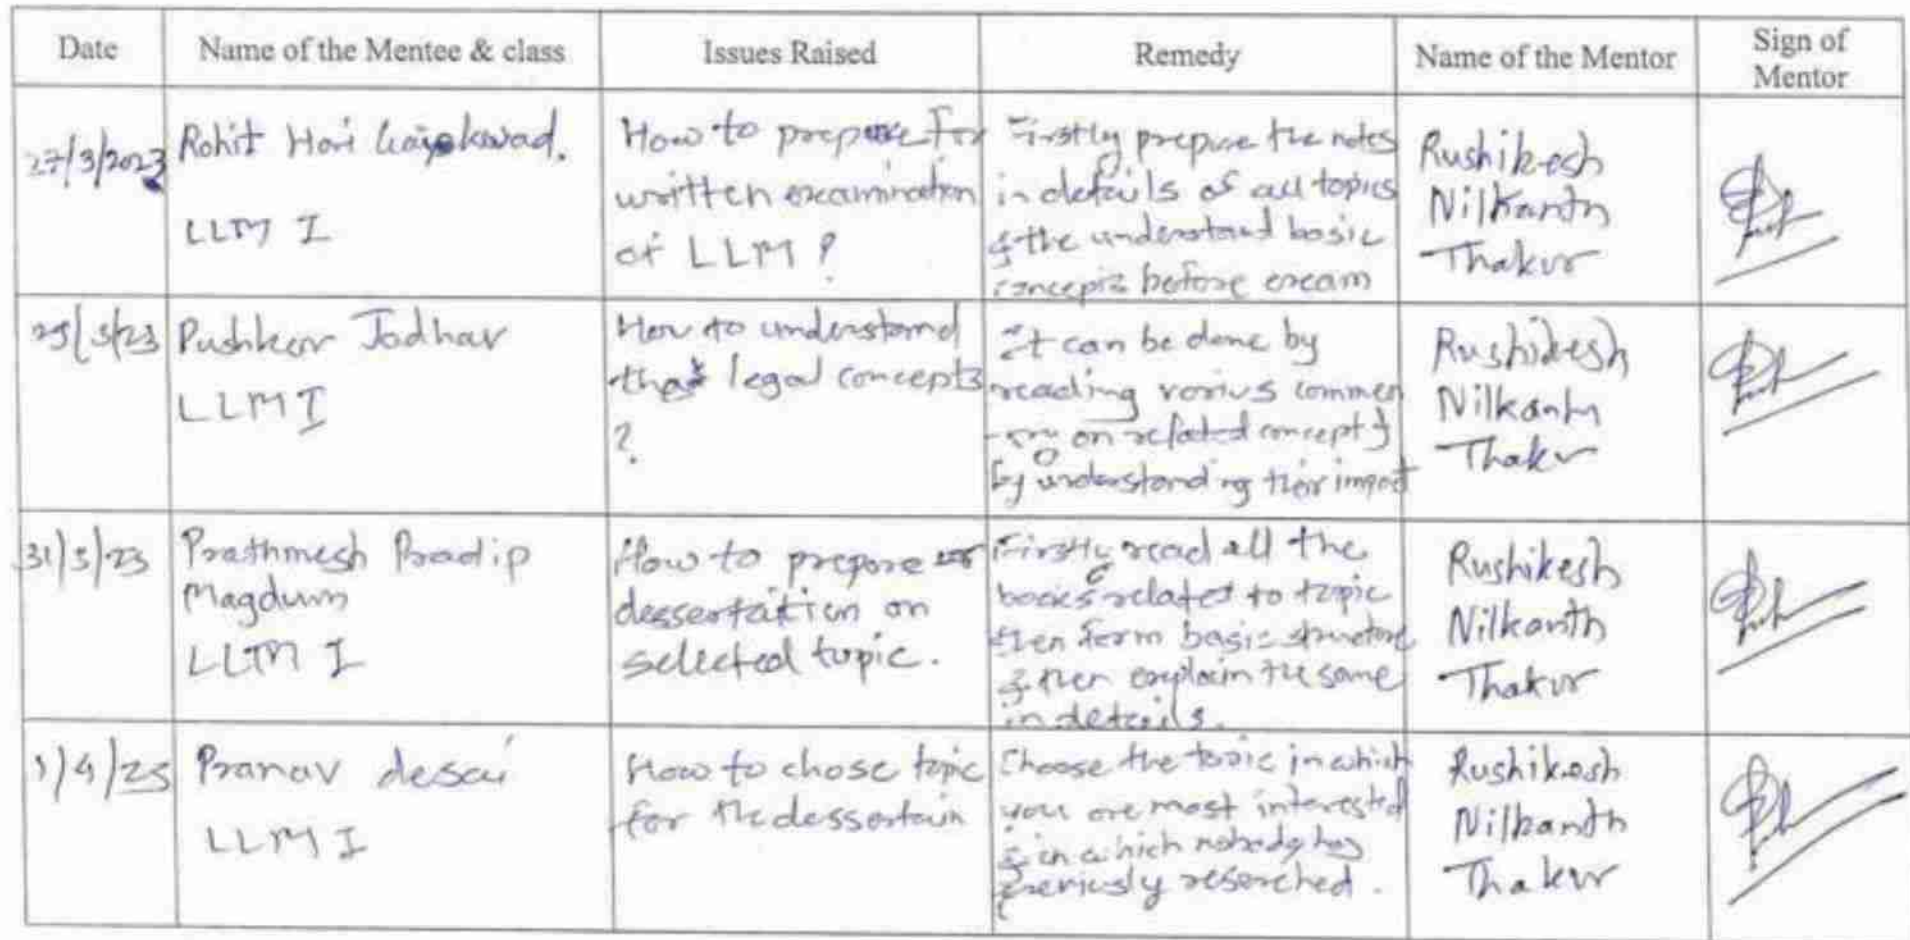 Date
Name of the Mentee & class
Issues Raised
Remedy
Name of the Mentor
Sign of
Mentor
27/3/2023
Rohit Hari Gaiykwad.
LLM I
How to prepare for
written examination
of LLM ?
Firstly prepare the notes
in details of all topics
& the understand basic
concepts before exam
Rushikesh
Nilkanth
Thakur
29/3/23
Pushkar Jadhav
LLM I
How to understand
that legal concepts
?
It can be done by
reading varius commen
-try on related concept &
by understanding their impact
Rushikesh
Nilkanth
Thakur
31/3/23
Prathmesh Pradip
Magdum
LLM I
How to prepare
dessertaition on
selected topic.
Firstly read all the
books relates to topic
then form basic structure
& then explain the same
in details.
Rushikesh
Nilkanth
Thakur
1/4/23
Pranav desai
LLM I
How to chose topic
for the dessertain
Choose the topic in which
you are most interested
& in which nobody has
previusly reserched.
Rushikesh
Nilkanth
Thakur